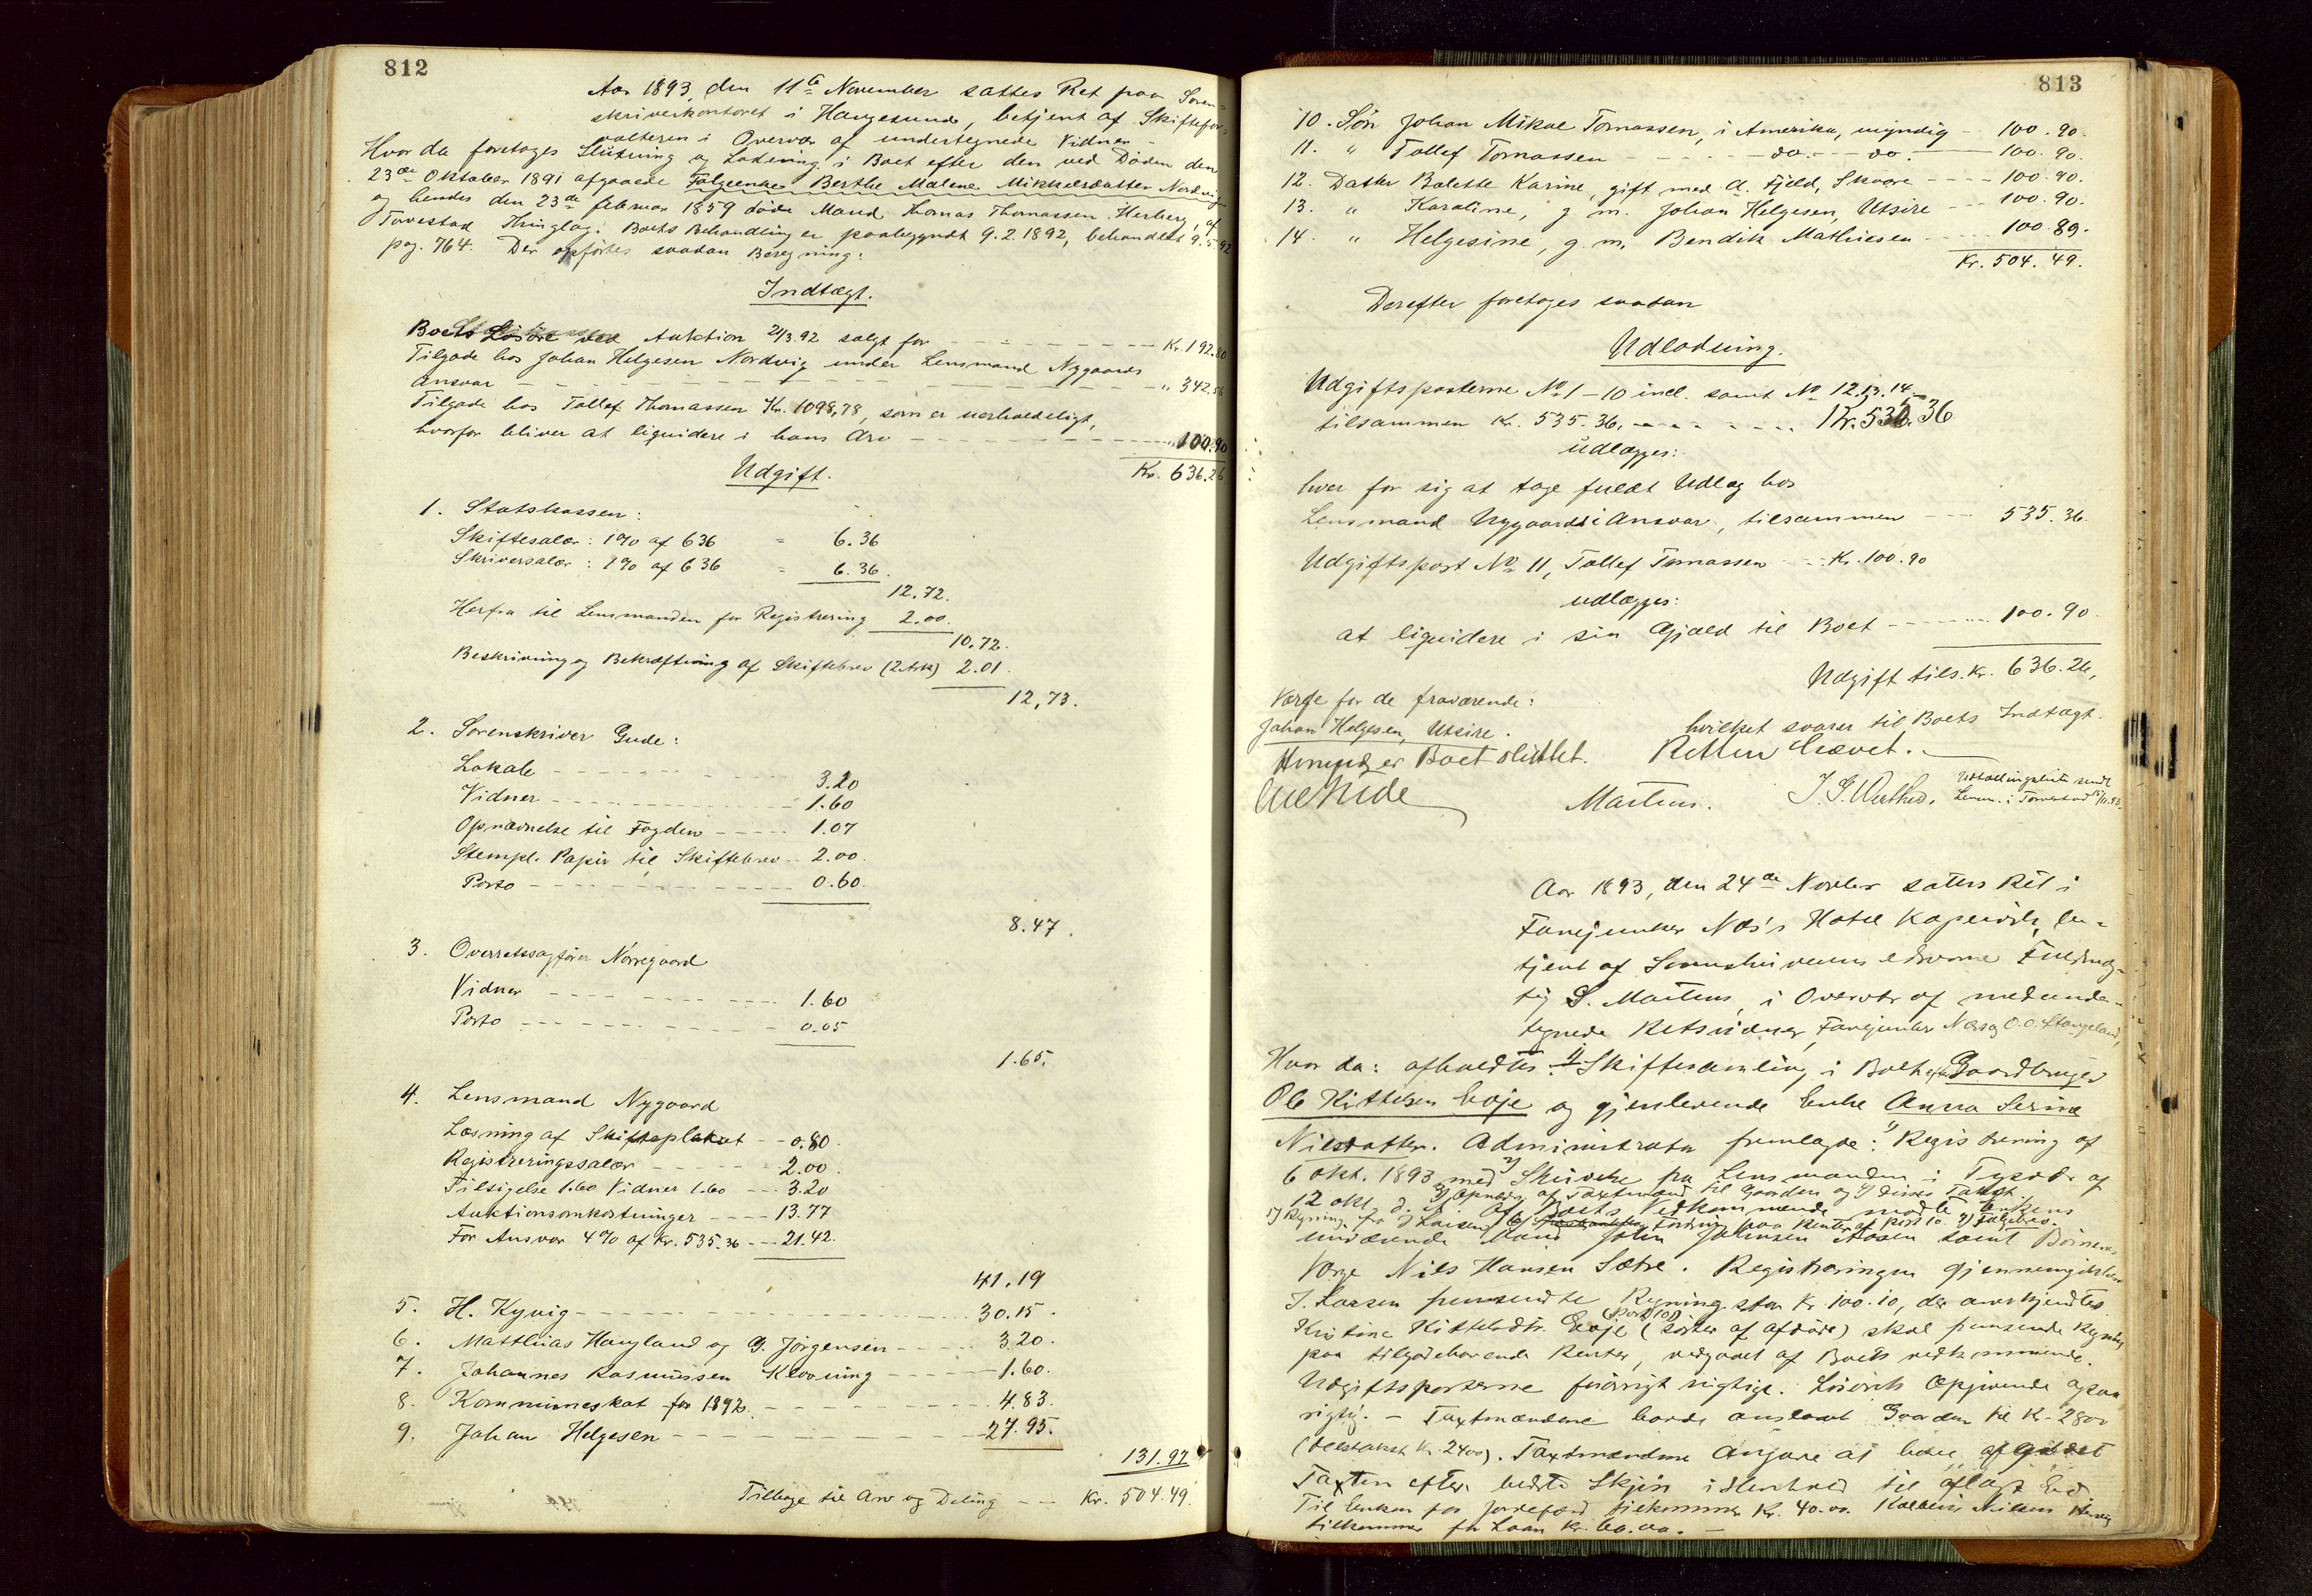 812
Aar 1893, den 11te November sattes Ret paa Soren-
skriverkontoret i Haugesund, betjent af Skiftefor-
valteren i Overvær af undertegnede Vidner -
Hvor da foretoges Slutning og Lodning i Boet efter den ved Døden den
23de Oktober 1891 afgaaede Følgeenke Berthe Malene Mikkelsdatter Nordvig
og hendes den 23de februar 1859 døde Mand Thomas Thomassen Herberg, af
Torvestad Thinglag. Boets Behandling er paabegyndt 9.2.1892, behandlet 9.5.92
pag. 764. Der opførtes saadan Beregning:
Indtægt.
Boets Løsøre ved Auktion 21/3.92 solgt for - - - Kr. 192.80
Tilgode hos Johan Helgesen Nordvig under Lensmand Nygaards
Ansvar - - - " 342.56
Tilgode hos Tollef Thomassen Kr. 1098,78, som er uerholdeligt,
hvorfor bliver at liquidere i hans Arv - - - " 100.90
Kr. 636.26
Udgift.
1. Statskassen:
Skiftesalær: 1% af 636 = 6.36
Skriversalær: 1% af 636 = 6.36.
12.72.
Herfra til Lensmanden for Registrering 2.00.
10.72.
Beskrivning og Bekræftning af Skiftebrev (2 Ark) 2.01.
12,73.
2. Sorenskriver Gude:
Lokale - - - 3.20
Vidner - - - 1.60
Opnævnelse til Fogden - - - 1.07
Stempl. Papir til Skiftebrev - - 2.00.
Porto - - - 0.60.
8.47.
3. Overretssagfører Nørregaard
Vidner - - - 1.60
Porto - - - 0.05
1.65.
4. Lensmand Nygaard
Læsning af Skifteplakat - - 0.80.
Registreringssalær - - - 2.00.
Tilsigelse 1.60 Vidner 1.60 - - - 3.20
Auktionsomkostninger - - - 13.77
For Ansvar 4% af Kr. 535.36 - - - 21.42.
41.19
5. H. Kyvig - - - 30.15.
6. Matthias Haugland og G. Jørgensen - - - 3.20.
7. Johannes Rasmussen Klovning - - - 1.60.
8. Kommuneskat for 1892. - - - 4.83.
9. Johan Helgesen - - - 27.95.
131.97
Tilbage til Arv og Deling - - Kr. 504.49.
813
10. Søn Johan Mikal Tomassen, i Amerika, myndig - 100.90.
11. " Tollef Tomassen - - - do. - do. - 100.90.
12. Datter Bolette Karine, gift med A. Fjeld, Skaare - - - 100.90.
13. " Karoline, g. m. Johan Helgesen, Utsire - - - 100.90.
14. " Helgesine, g. m. Bendik Mathiesen - - - 100.89.
Kr. 504.49.
Derefter foretoges saadan
Udlodning.
Udgiftsposterne No 1-10 incl. samt No 12.13.14
tilsammen Kr. 535.36. - - - Kr. 535.36
udlægges:
hver for sig at tage fuldt Udlæg hos
Lensmand Nygaard i Ansvar, tilsammen - - - 535.36.
Udgiftspost No 11, Tollef Tomassen - - - Kr. 100.90
udlægges:
at liquidere i sin Gjæld til Boet - - - 100.90.
Udgift tils. Kr. 636.26,
Værge for de fraværende:
hvilket svarer til Boets Indtægt.
Johan Helgesen, Utsire.
Hermed er Boet sluttet. Retten hævet. -
Martens.
Aar 1893, den 24de Novber sattes Ret i
Fanejunker Næs's Hotel Kopervik, be-
tjent af Sorenskriverens edsvorne Fuldmæg-
tig S. Martens, i Overvær af medunder-
tegnede Retsvidner, Fanejunker Næs og O. O. Stangeland,
Hvor da: afholdtes Skiftesamling i Boet efter Gaardbruger
Ole Kittelsen Eoje og gjenlevende Enke Anna Serine
Nilsdatter. Administrator fremlagde: 1) Registrering af
6 okt. 1893 med 2) Skrivelse fra Lensmanden i Tysvær af
12 okt. d. A. Af Boets Vedkommende mødte Enkens
3) Opnævn. af Taxtmænd til Gaarden og 4) disses Takst
5) Regning fra J Larsen 6) Fordring paa Renter af Post 10. 7) Følgebrev.
nuværende Mand John Johnsen Aasen samt Børnenes
Værge Nils Hansen Sætre. Registreringen gjennemgikkes
J. Larsen fremsendte Regning stor Kr. 100.10, der anerkjendtes
Kristine Kittelsdtr. Eoje (Post 10) (søster af afdøde) skal fremsende Regning
paa tilgodehavende Renter, vedgaaet af Boets vedkommende.
Udgiftsposterne forøvrigt rigtige. Løsørets Opgivende ogsaa
rigtig. - Taxtmændene havde ansat Gaarden til Kr. 2800
(Deltakst Kr. 2400). Taxtmændene at have afgivet
Taxten efter bedste Skjøn i Henhold til aflagt Ed.
Til Enken for Jordefærd tilkommer Kr. 40.00.
tilkommer for Laan Kr. 60.00. -